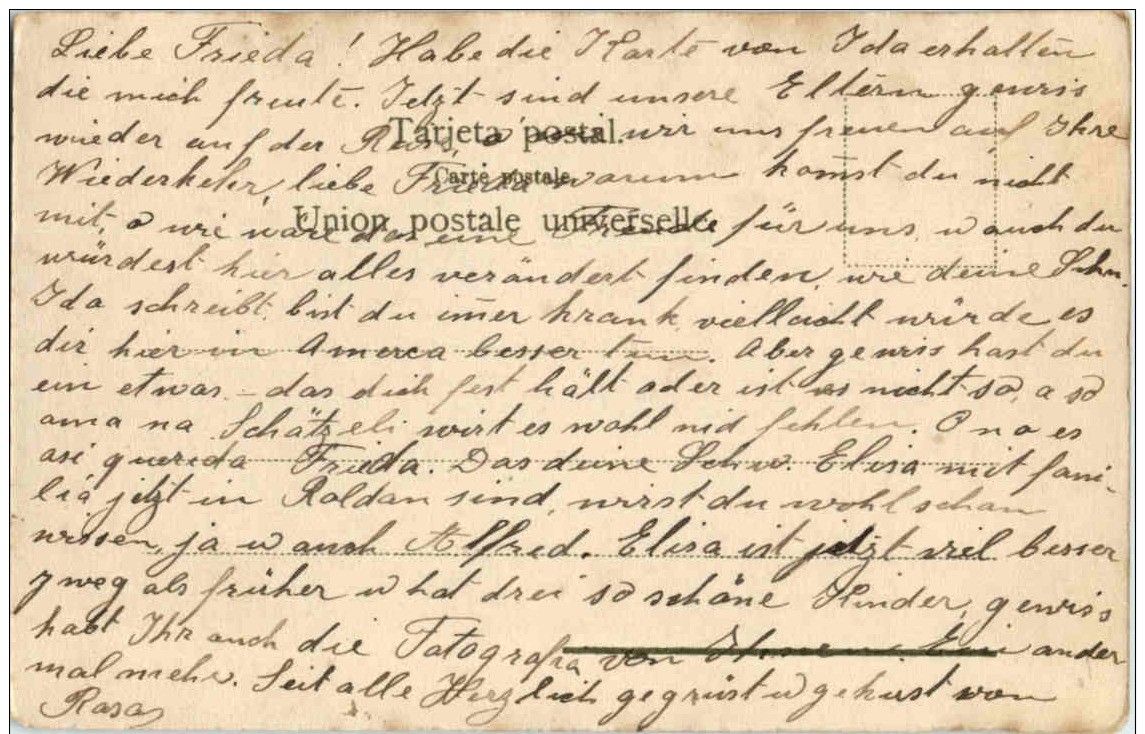 Liebe Frieda! Habe die Karte von Ida erhalten
die mich freute. Jetzt sind unsere Eltern gewis
wieder auf der Reise, o wir uns freuen auf Ihre
Tarjeta postal.
Wiederkehr, liebe Frieda warum komst du nicht
Carte postale.
mit, o wie wäre das eine Freude für uns, u auch du
Union postale universelle
würdest hier alles verändert finden, wie deine Schw.
Ida schreibt, bist du imer krank, vielleicht würde es
dir hier in Amerca besser tun. Aber gewiss hast du
ein etwas - das dich fest hält oder ist es nicht so, a so
ama na Schätzeli wirt es wohl nid fehlen. O no es
asi querida Frieda. Das deine Schw. Elisa mit fami-
lia jetzt in Roldan sind, wirst du wohl schon
wissen, ja u auch Alfred. Elisa ist jetzt viel besser
zweg als früher u hat drei so schöne Kinder, gewiss
habt Ihr auch die Fatografia von Ihnen. Ein ander
mal mehr. Seit alle Herzlich gegrüst u gekust von
Rosa